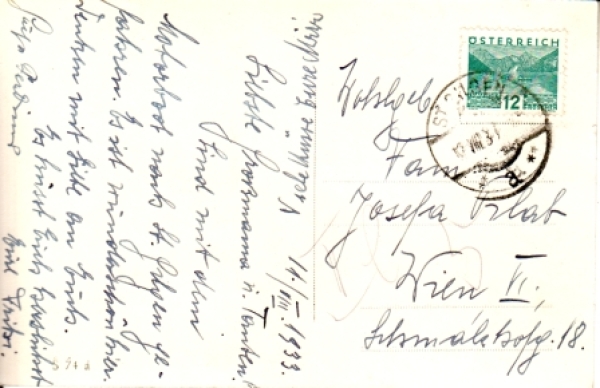 14./VIII. 1933.
Liebste Grossmama u. Tanten!
Sind mit dem
Motorboot nach St. Gilgen ge-
fahren. Es ist wunderschön hier.
Denken mit Liebe an Euch.
Es küsst Euch herzlichst
Euer Fritzi.
ÖSTERREICH
12
ST. GILGEN
Wohlgeb.
Fam
Josefa
Wien VI.,
Schmalzhofg. 18.